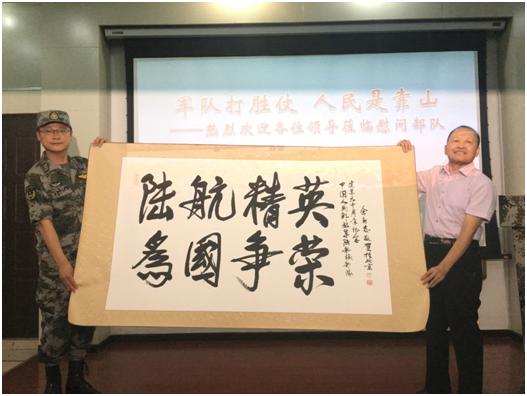 军队打胜仗 人民是靠山
——热烈欢迎各位领导莅临慰问部队
陸航精英
為國争荣